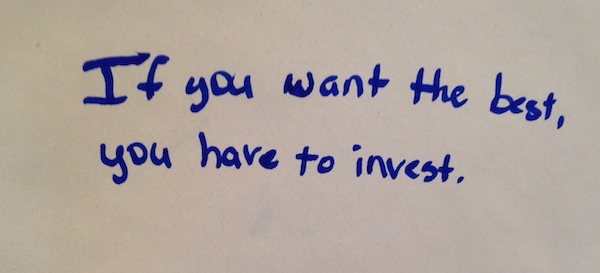 If you want the best,
you have to invest.